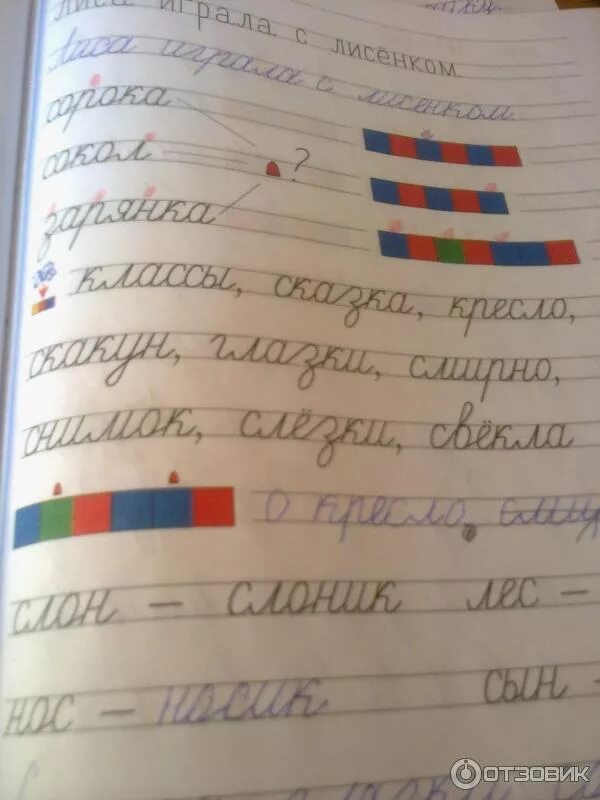 лиса играла с лисёнком
Лиса играла с лисёнком
сорока
сокол
?
зарянка
классы, сказка, кресло,
скакун, глазки, смирно,
снимок, слёзки, свёкла
кресло,
слон – слоник лес –
нос – носик сын –
ОТЗОВИК